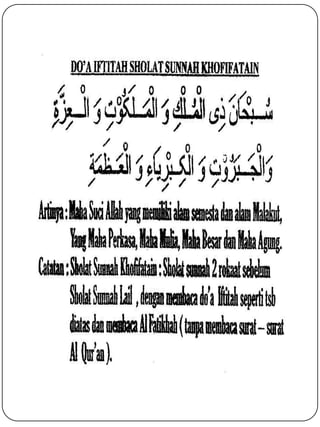 DO'A IFTITAH SHOLAT SUNNAH KHOFIFATAIN
سُبْحَانَ ذِى الْمُلْكِ وَ الْمَلَكُوْتِ وَ الْعِزَّةِ
وَالْجَبَرُوْتِ وَ الْكِبْرِيَاءِ وَ الْعَظَمَةِ
Artinya : Maha Suci Allah yang memiliki alam semesta dan alam Malakut,
Yang Maha Perkasa, Maha Mulia, Maha Besar dan Maha Agung.
Catatan : Sholat Sunnah Khofifatain : Sholat sunnah 2 rokaat sebelum
Sholat Sunnah Lail , dengan membaca do'a Iftitah seperti tsb
diatas dan membaca Al Fatikhah ( tanpa membaca surat – surat
Al Qur'an ).